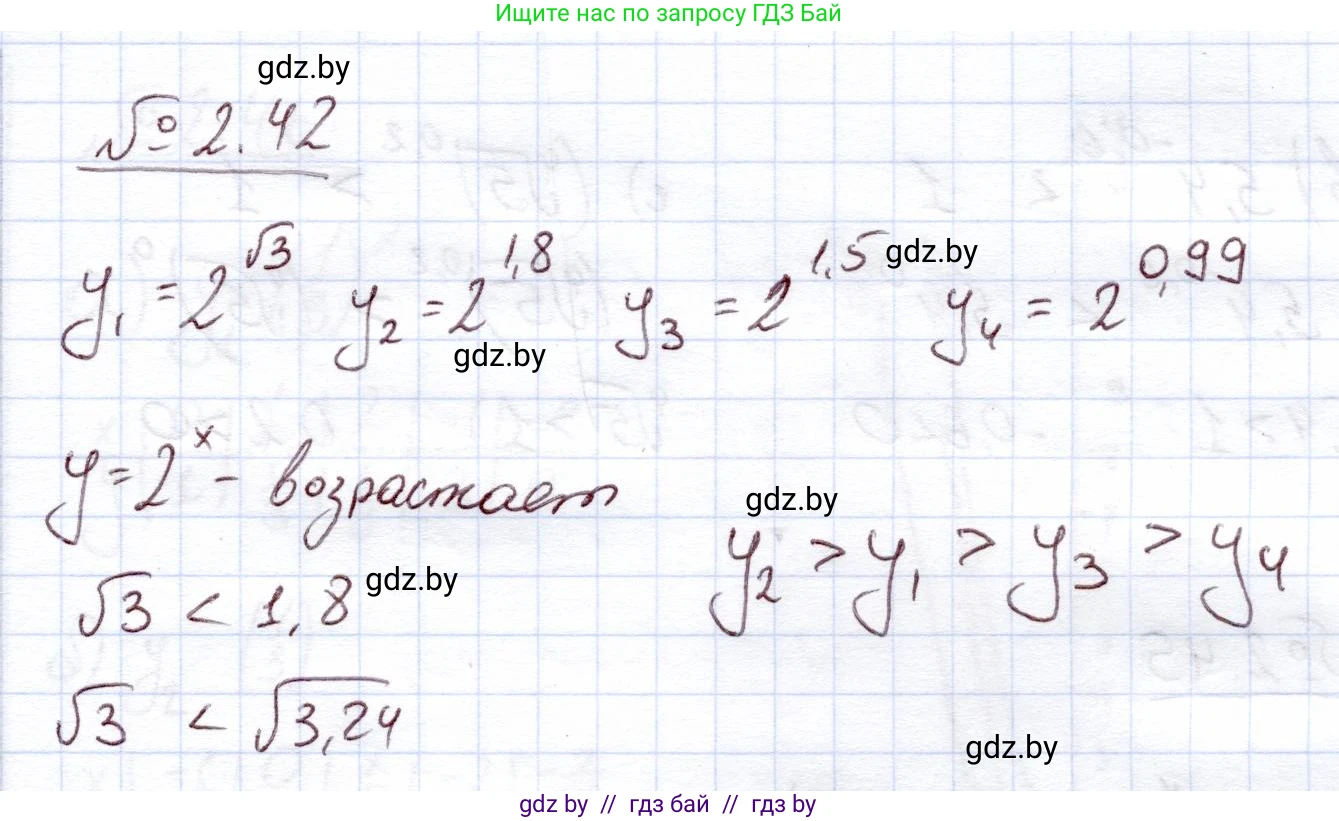 Ищите нас по запросу ГДЗ Бай
gdz.by
№ 2.42
y₁ = 2^√3 y₂ = 2^1,8 y₃ = 2^1,5 gdz.by y₄ = 2^0,99
gdz.by
y = 2^x - возрастает
gdz.by
y₂ > y₁ > y₃ > y₄
√3 < 1,8 gdz.by
√3 < √3,24
gdz.by
gdz by // гдз бай // гдз by